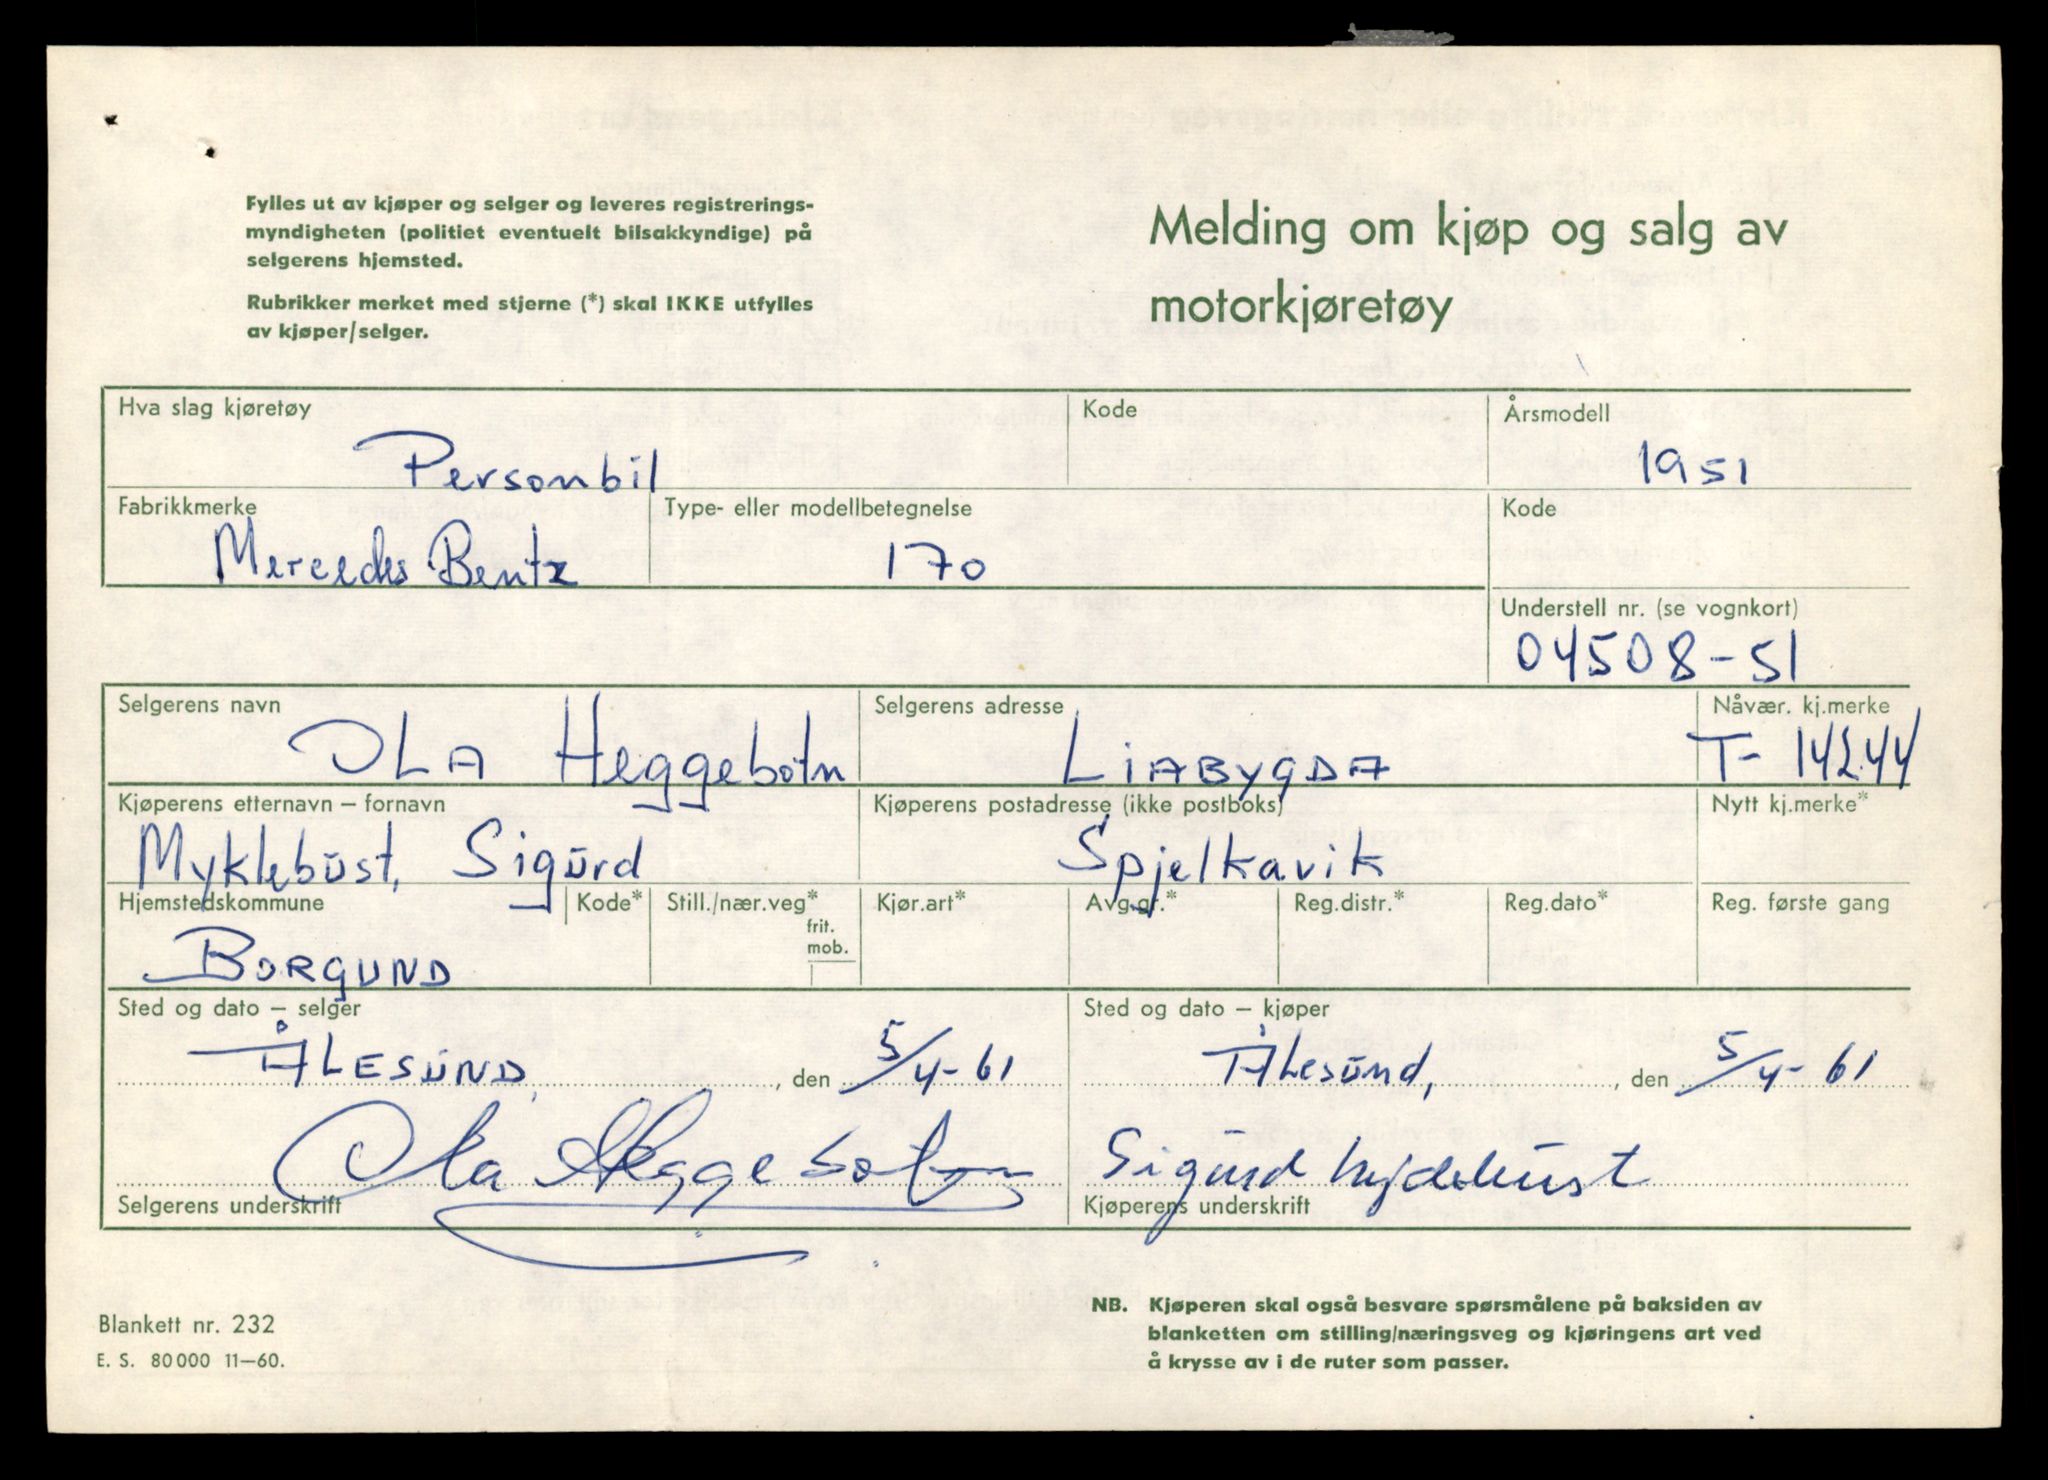 Fylles ut av kjøper og selger og leveres registrerings-
myndigheten (politiet eventuelt bilsakkyndige) på
selgerens hjemsted.
Rubrikker merket med stjerne (*) skal IKKE utfylles
av kjøper/selger.
Melding om kjøp og salg av
motorkjøretøy
Hva slag kjøretøy
Personbil
Kode
Årsmodell
1951
Fabrikkmerke
Mercedes Bentz
Type- eller modellbetegnelse
170
Kode
Understell nr. (se vognkort)
04508-51
Selgerens navn
OLA Heggebotn
Selgerens adresse
LIABYGDA
Nåvær. kj.merke
T- 14244
Kjøperens etternavn – fornavn
Myklebust, Sigurd
Kjøperens postadresse (ikke postboks)
Spjelkavik
Nytt kj.merke*
Hjemstedskommune
BORGUND
Kode*
Still./nær.veg*
frit.
mob.
Kjør.art*
Avg.gr.*
Reg.distr.*
Reg.dato*
Reg. første gang
Sted og dato – selger
ÅLESUND, den 5/4-61
Ola Heggebotn
Selgerens underskrift
Sted og dato – kjøper
Ålesund, den 5/4-61
Sigurd Myklebust
Kjøperens underskrift
Blankett nr. 232
E. S. 80000 11–60.
NB. Kjøperen skal også besvare spørsmålene på baksiden av
blanketten om stilling/næringsveg og kjøringens art ved
å krysse av i de ruter som passer.